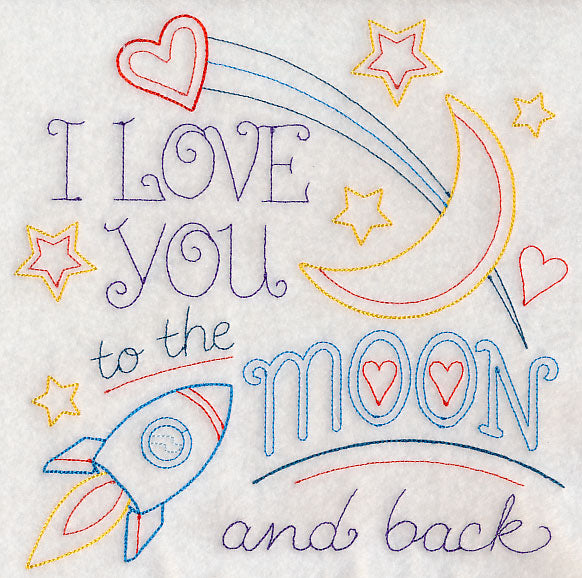 I LOVE
YOU
to the
MOON
and back